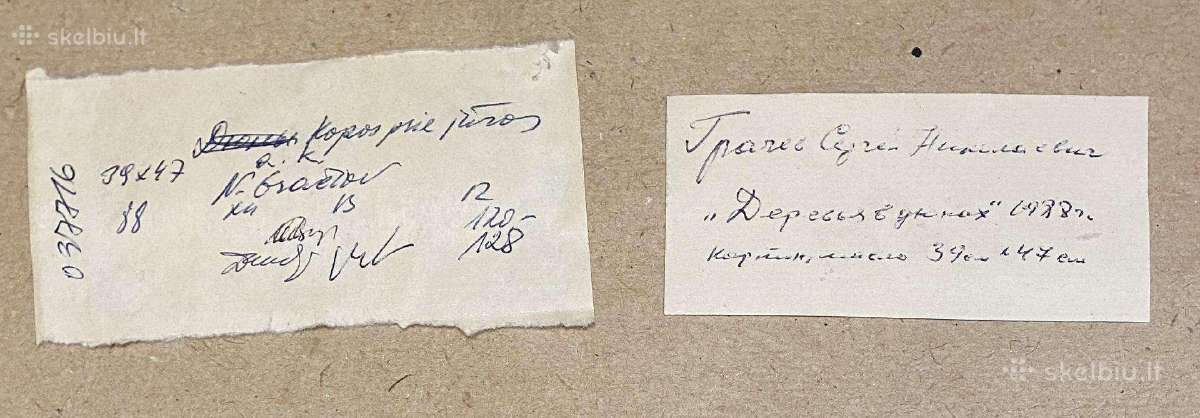 skelbiu.lt
037716
39x47
88
Kopos prie jūros
a. k.
N. Gračiov
XII
13
12
120-
128
Грачев Сергей Николаевич
„Деревья в дюнах" 1988 г.
картон, масло 39 см x 47 см
skelbiu.lt